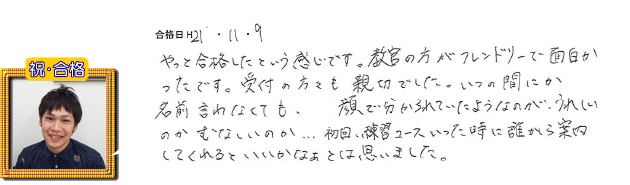 合格日 H21・11・9
祝・合格
やっと合格したという感じです。教官の方がフレンドリーで面白か
ったです。受付の方々も親切でした。いつの間にか
名前言わなくても、顔で分かられていたようなのが、うれしい
のかむなしいのか…初回、練習コースいった時に誰から案内
してくれるといいかなぁとは思いました。